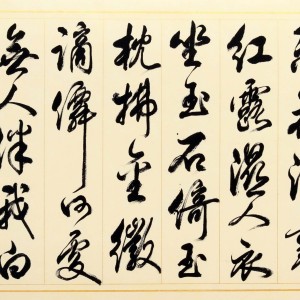 紅露濕人衣
坐玉石倚玉
枕拂金徽
謫僊何處
無人伴我白